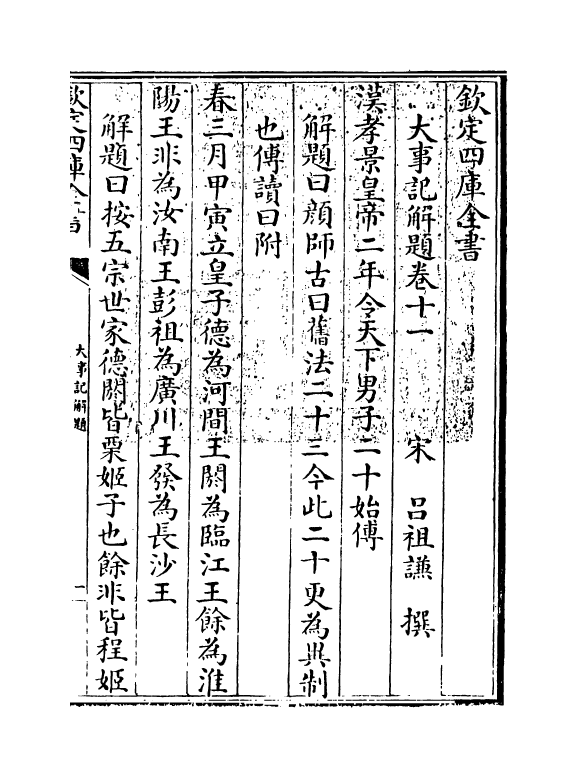 欽定四庫全書
大事記解題卷十一 宋 呂祖謙 撰
漢孝景皇帝二年令天下男子二十始傅
解題曰顔師古曰舊法二十三今此二十更為異制
也傅讀曰附
春三月甲寅立皇子德為河間王閼為臨江王餘為淮
陽王非為汝南王彭祖為廣川王發為長沙王
解題曰按五宗世家德閼皆栗姬子也餘非皆程姬
欽定四庫全書
大事記解題
一